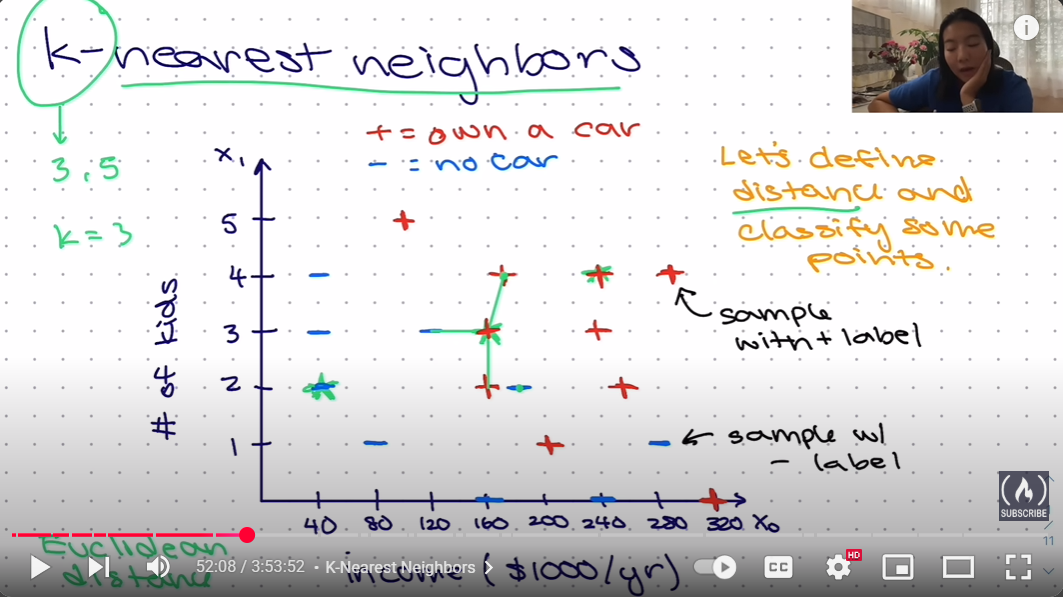 k-nearest neighbors
+ = own a car
- = no car
3, 5
k = 3
Let's define
distance and
classify some
points.
x₁
5
4
3
2
1
# of kids
sample
with + label
sample w/
- label
40 80 120 160 200 240 280 320 x₀
income ($1000/yr)
Euclidean
distance
SUBSCRIBE
11
52:08 / 3:53:52 • K-Nearest Neighbors
CC
HD